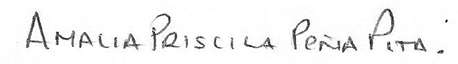 Amalia Priscila Peña Pita.